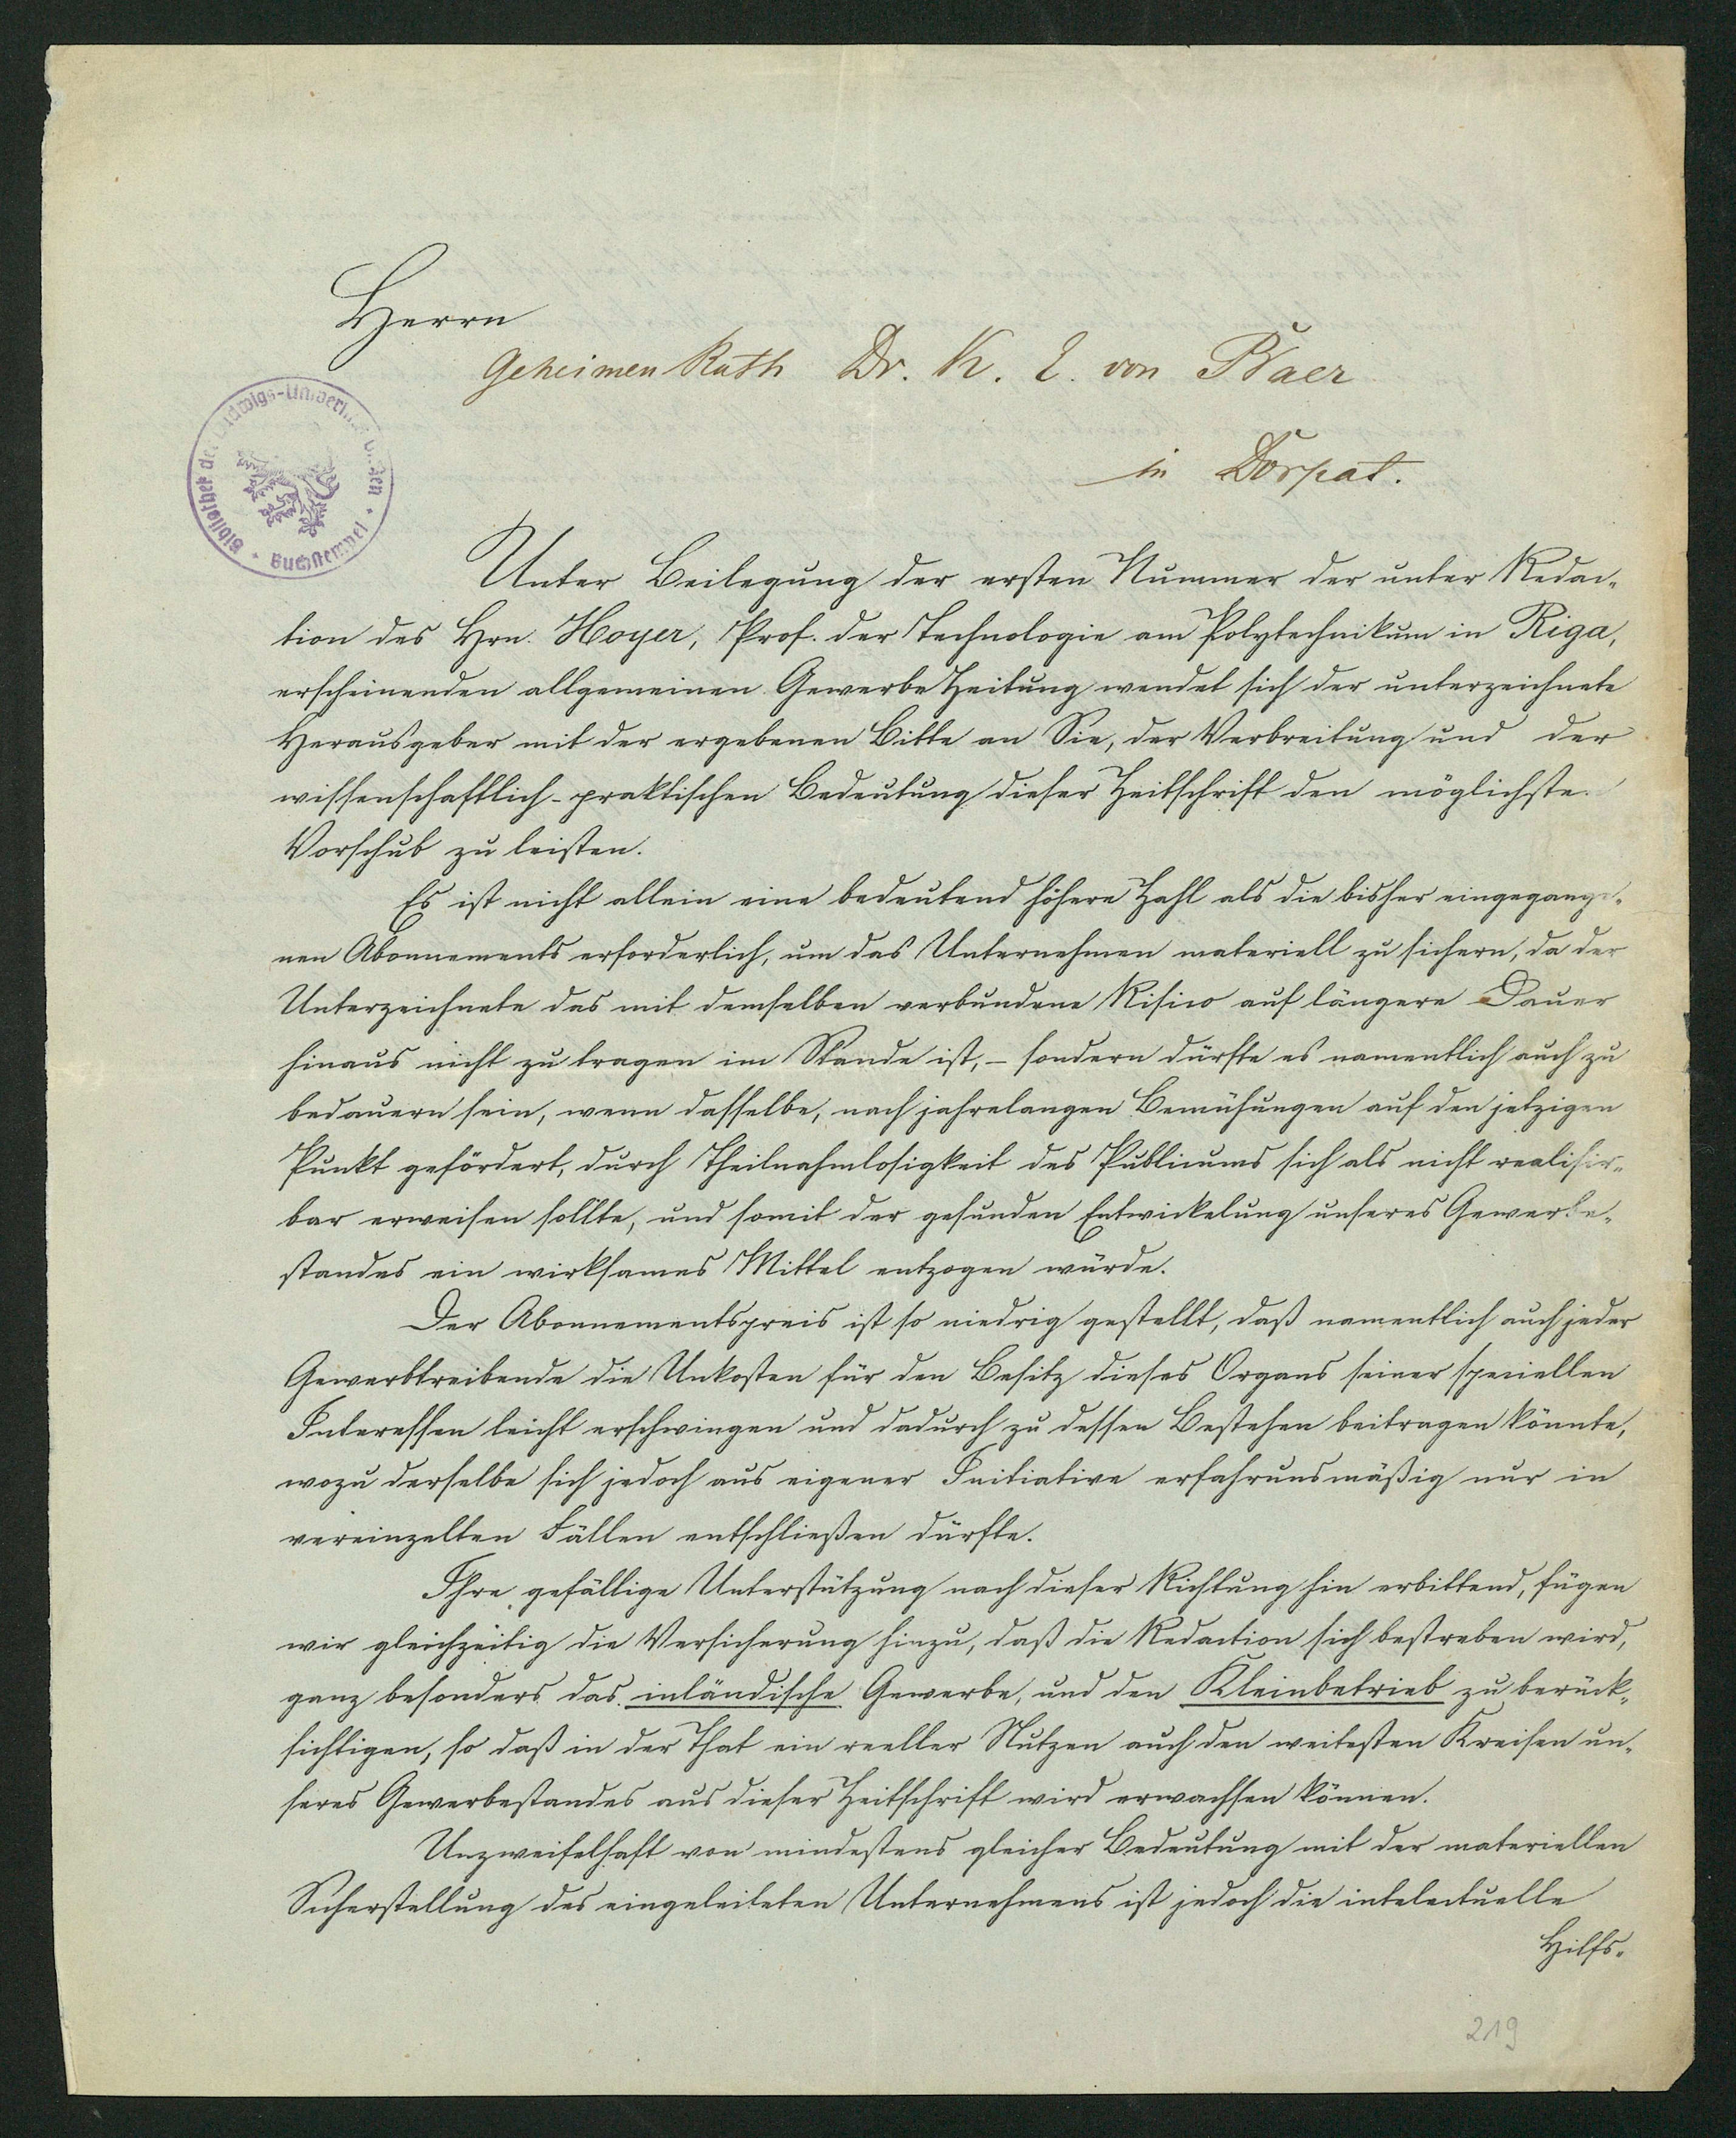 Herrn
Geheimen Rath Dr. K. E. von Baer
in Dorpat.
Bibliothek der Ludwigs-Universität Gießen • Buchstempel •
Unter Beilegung der ersten Nummer der unter Redac-
tion des Hrn. Hoyer, Prof. der Technologie am Polytechnikum in Riga,
erscheinenden allgemeinen GewerbeZeitung wendet sich der unterzeichnete
Herausgeber mit der ergebenen Bitte an Sie, der Verbreitung und der
wissenschaftlich-praktischen Bedeutung dieser Zeitschrift den möglichsten
Vorschub zu leisten.
Es ist nicht allein eine bedeutend höhere Zahl als die bisher eingegange-
nen Abonnements erforderlich, um das Unternehmen materiell zu sichern, da der
Unterzeichnete das mit demselben verbundene Risico auf längere Dauer
hinaus nicht zu tragen im Stande ist, – sondern dürfte es namentlich auch zu
bedauern sein, wenn dasselbe, nach jahrelangen Bemühungen auf den jetzigen
Punkt gefördert, durch Theilnahmlosigkeit des Publicums sich als nicht realisir-
bar erweisen sollte, und somit der gesunden Entwickelung unseres Gewerbe-
standes ein wirksames Mittel entzogen würde.
Der Abonnementspreis ist so niedrig gestellt, daß namentlich auch jeder
Gewerbtreibende die Unkosten für den Besitz dieses Organs seiner speciellen
Interessen leicht erschwingen und dadurch zu dessen Bestehen beitragen könnte,
wozu derselbe sich jedoch aus eigener Initiative erfahrunsmäßig nur in
vereinzelten Fällen entschließen dürfte.
Ihre gefällige Unterstützung nach dieser Richtung hin erbittend, fügen
wir gleichzeitig die Versicherung hinzu, daß die Redaction sich bestreben wird,
ganz besonders das inländische Gewerbe, und den Kleinbetrieb zu berück-
sichtigen, so daß in der That ein reeller Nutzen auch den weitesten Kreisen un-
seres Gewerbestandes aus dieser Zeitschrift wird erwachsen können.
Unzweifelhaft von mindestens gleicher Bedeutung mit der materiellen
Sicherstellung des eingeleiteten Unternehmens ist jedoch die intelectuelle
Hilfs-
219